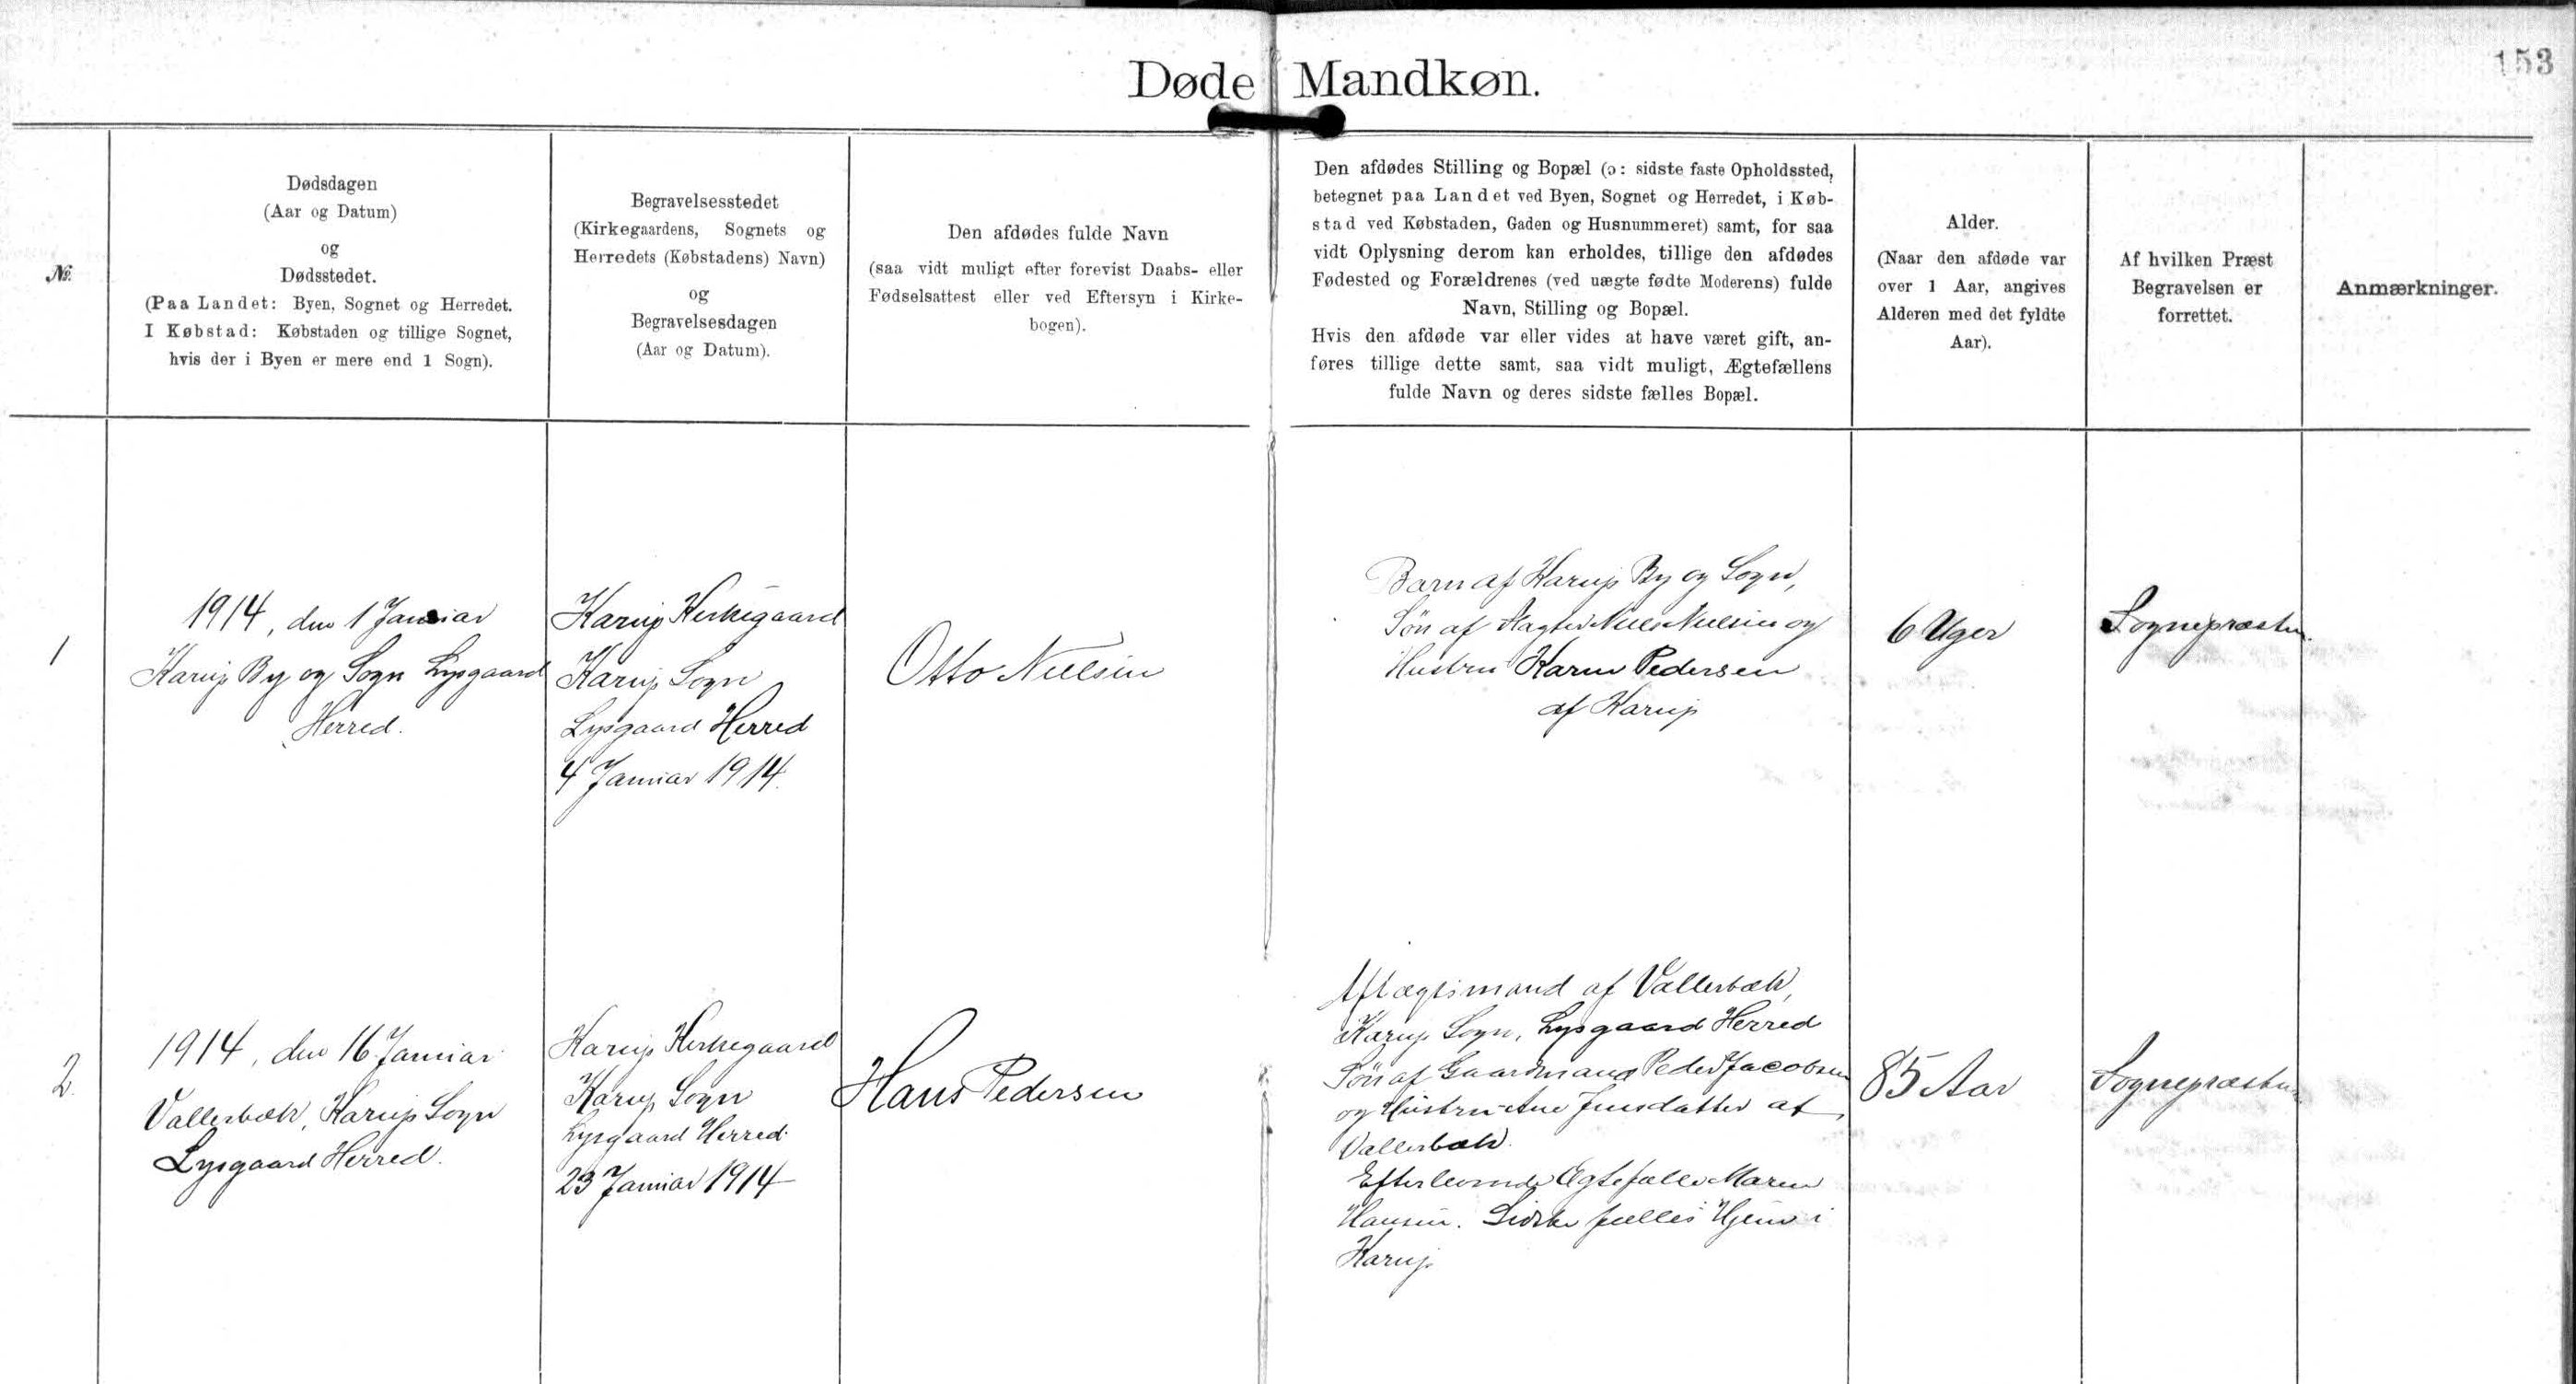 153
Døde Mandkøn.
№.
Dødsdagen
(Aar og Datum)
og
Dødsstedet.
(Paa Landet: Byen, Sognet og Herredet.
I Købstad: Købstaden og tillige Sognet,
hvis der i Byen er mere end 1 Sogn).
Begravelsesstedet
(Kirkegaardens, Sognets og
Herredets (Købstadens) Navn)
og
Begravelsesdagen
(Aar og Datum).
Den afdødes fulde Navn
(saa vidt muligt efter forevist Daabs- eller
Fødselsattest eller ved Eftersyn i Kirke-
bogen).
Den afdødes Stilling og Bopæl (ɔ: sidste faste Opholdssted,
betegnet paa Landet ved Byen, Sognet og Herredet, i Køb-
stad ved Købstaden, Gaden og Husnummeret) samt, for saa
vidt Oplysning derom kan erholdes, tillige den afdødes
Fødested og Forældrenes (ved uægte fødte Moderens) fulde
Navn, Stilling og Bopæl.
Hvis den afdøde var eller vides at have været gift, an-
føres tillige dette samt, saa vidt muligt, Ægtefællens
fulde Navn og deres sidste fælles Bopæl.
Alder.
(Naar den afdøde var
over 1 Aar, angives
Alderen med det fyldte
Aar).
Af hvilken Præst
Begravelsen er
forrettet.
Anmærkninger.
1
1914, den 1 Januar
Karup By og Sogn Lysgaard
Herred.
Karup Kirkegaard
Karup Sogn
Lysgaard Herred
4 Januar 1914.
Otto Nielsen
Barn af Karup By og Sogn,
Søn af Slagter Niels Nielsen og
Hustru Karen Pedersen
af Karup
6 Uger
Sognepræsten.
2.
1914, den 16. Januar
Vallerbæk, Karup Sogn
Lysgaard Herred.
Karup Kirkegaard
Karup Sogn
Lysgaard Herred.
23 Januar 1914
Hans Pedersen
Aftægtsmand af Vallerbæk,
Karup Sogn, Lysgaard Herred
Søn af Gaardmand Peder Jacobsen
og Hustru Ane Jensdatter af
Vallerbæk.
Efterlevende Ægtefælle Maren
Hansen. Sidste fælles Hjem i
Karup
85 Aar
Sognepræsten